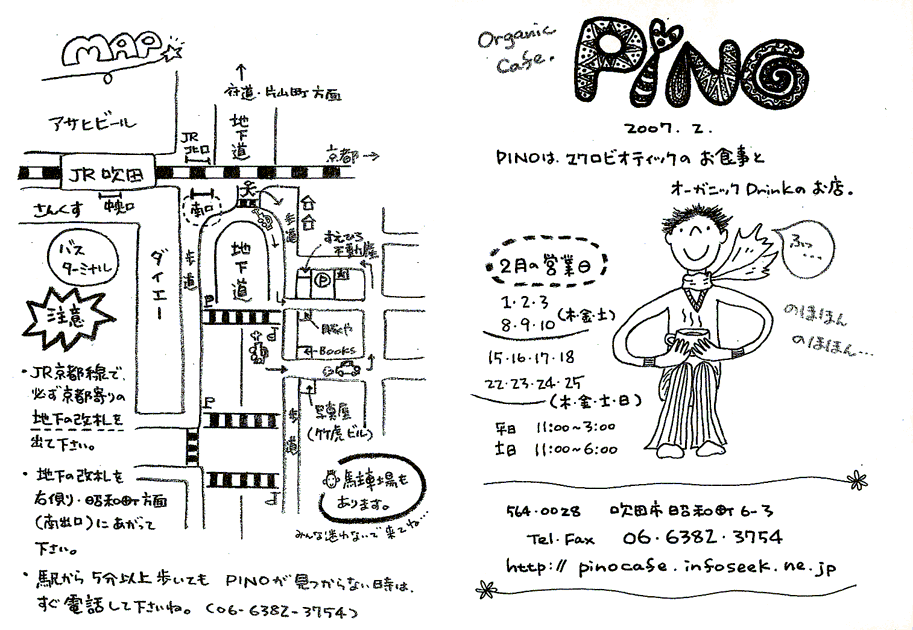 MAP
行道・片山町方面
アサヒビール
地下道
JR
北口
京都→
JR 吹田
さんくす
中央口
南口
歩道
すえひろ
不動産
バス
ターミナル
ダイエー
歩道
地下道
P
注意
BOOKS
写真屋
(竹虎ビル)
歩道
・JR京都線で、
必ず京都寄りの
地下の改札を
出て下さい。
・地下の改札を
右側り・昭和町方面
(南出口)にあがって
下さい。
駐車場も
あります。
みんな迷わないで来てね…
・駅から5分以上歩いても PINOが見つからない時は、
すぐ電話して下さいね。(06-6382-3754)
Organic
Cafe.
PiNO
2007. 2.
PINOは、マクロビオティックの お食事と
オーガニックDrinkの お店。
2月の営業日
1・2・3
8・9・10 (木・金・土)
15・16・17・18
22・23・24・25
(木・金・土・日)
平日 11:00~3:00
土日 11:00~6:00
ふっ…
のほほん
のほほん…
564-0028 吹田市昭和町6-3
Tel・Fax 06・6382・3754
http:// pinocafe.infoseek.ne.jp